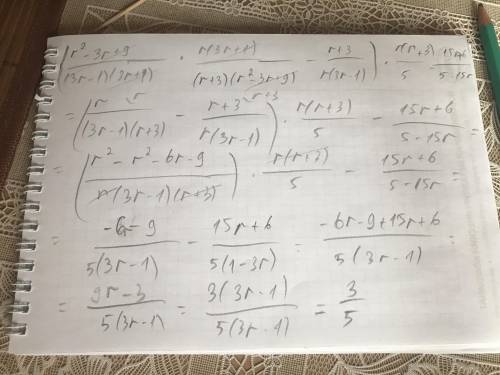 (r² - 3r + 9 / (3r-1)(3r+4) · r(3r+4) / (r+3)(r²-3r+9) - r+3 / r(3r-1)) · r(r+3) / 5 - 15r+6 / 5-15r
= (r / (3r-1)(r+3) - r+3 / r(3r-1)) · r(r+3) / 5 - 15r+6 / 5-15r =
= (r² - r² - 6r - 9 / r(3r-1)(r+3)) · r(r+3) / 5 - 15r+6 / 5-15r =
= -6r-9 / 5(3r-1) - 15r+6 / 5(1-3r) = -6r-9+15r+6 / 5(3r-1) =
= 9r-3 / 5(3r-1) = 3(3r-1) / 5(3r-1) = 3 / 5